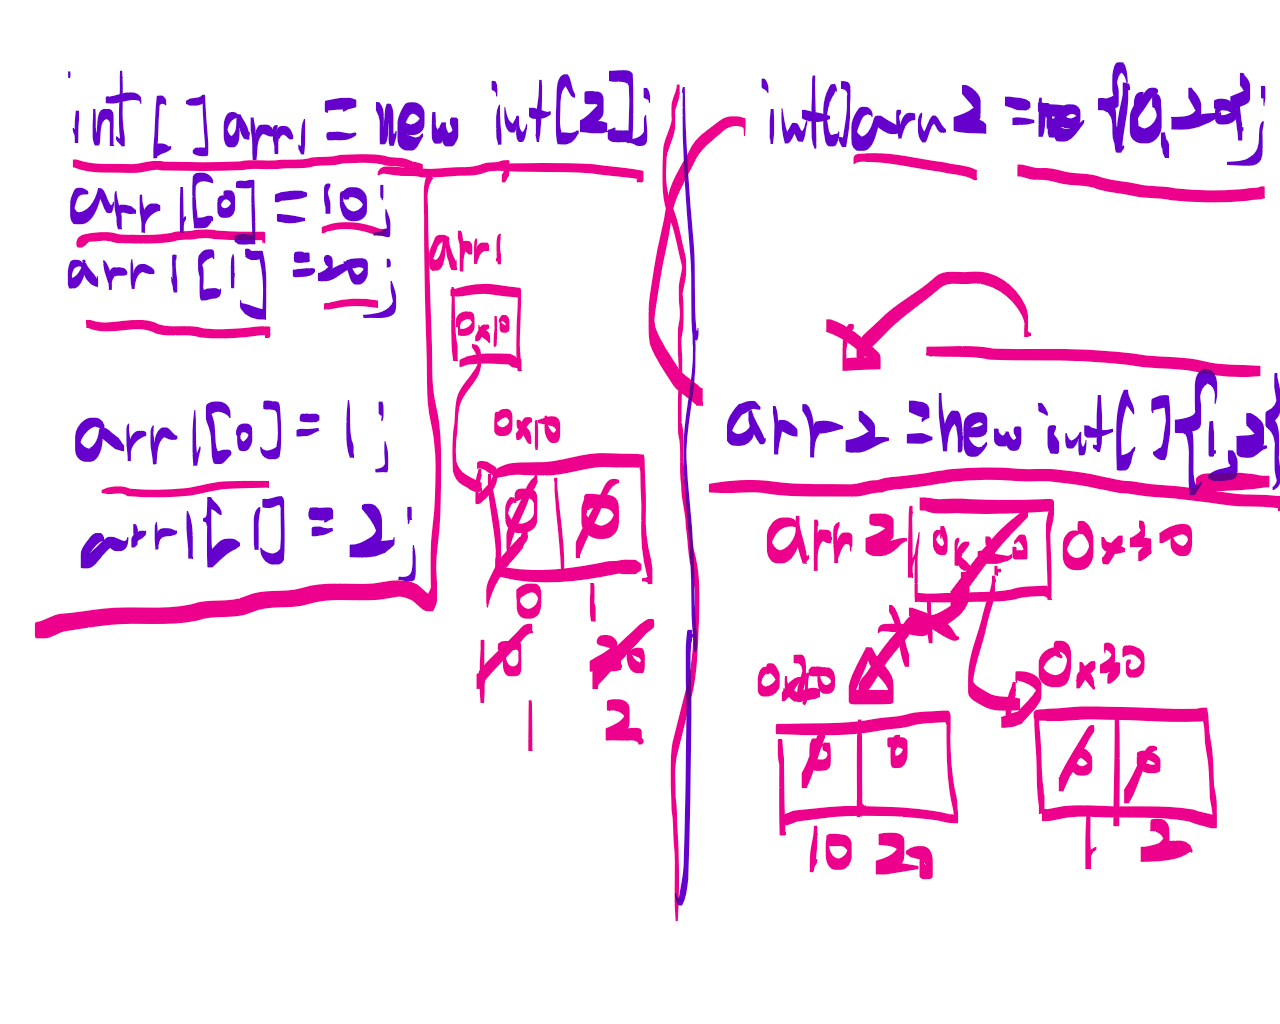 int[] arr1 = new int[2];
arr1[0] = 10;
arr1[1] = 20;
arr1[0] = 1;
arr1[1] = 2;
arr1
0x10
0x10
0 0
0 1
10 20
1 2
int[] arr2 = {10, 20};
arr2 = new int[]{1,2}
arr2 0x20 0x30
0x20
0 0
10 20
0x30
0 0
1 2